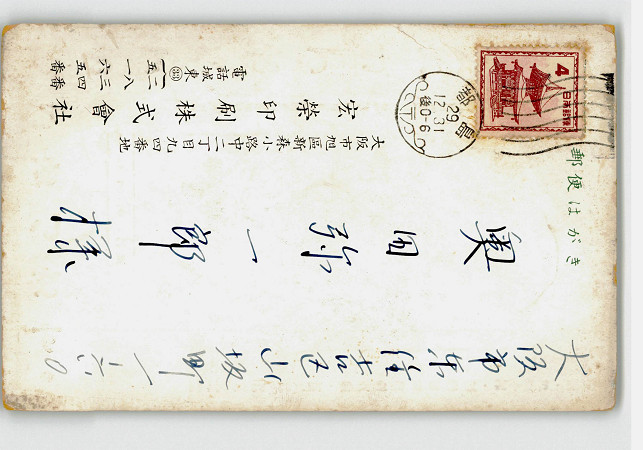 郵便はがき
4
日本郵便
都島
29
12.31
後0-6
大阪市東住吉区山坂町一ノ六〇
奥田弥一郎様
大阪市旭區新森小路中二丁目九四番地
宏榮印刷株式會社
電話城東(33)
二八三四番
五一六五番